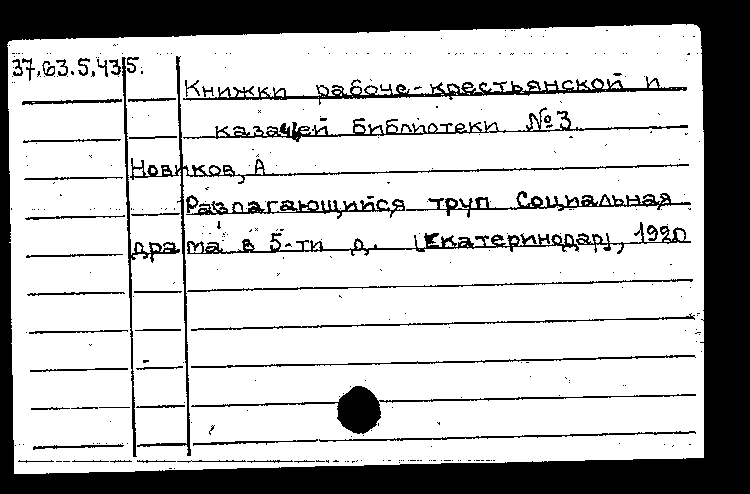 37.63.5.43|5.
Книжки рабоче-крестьянской и
казачьей библиотеки №3
Новиков, А
Разлагающийся труп Социальная
драма в 5-ти д. [Екатеринодар], 1920